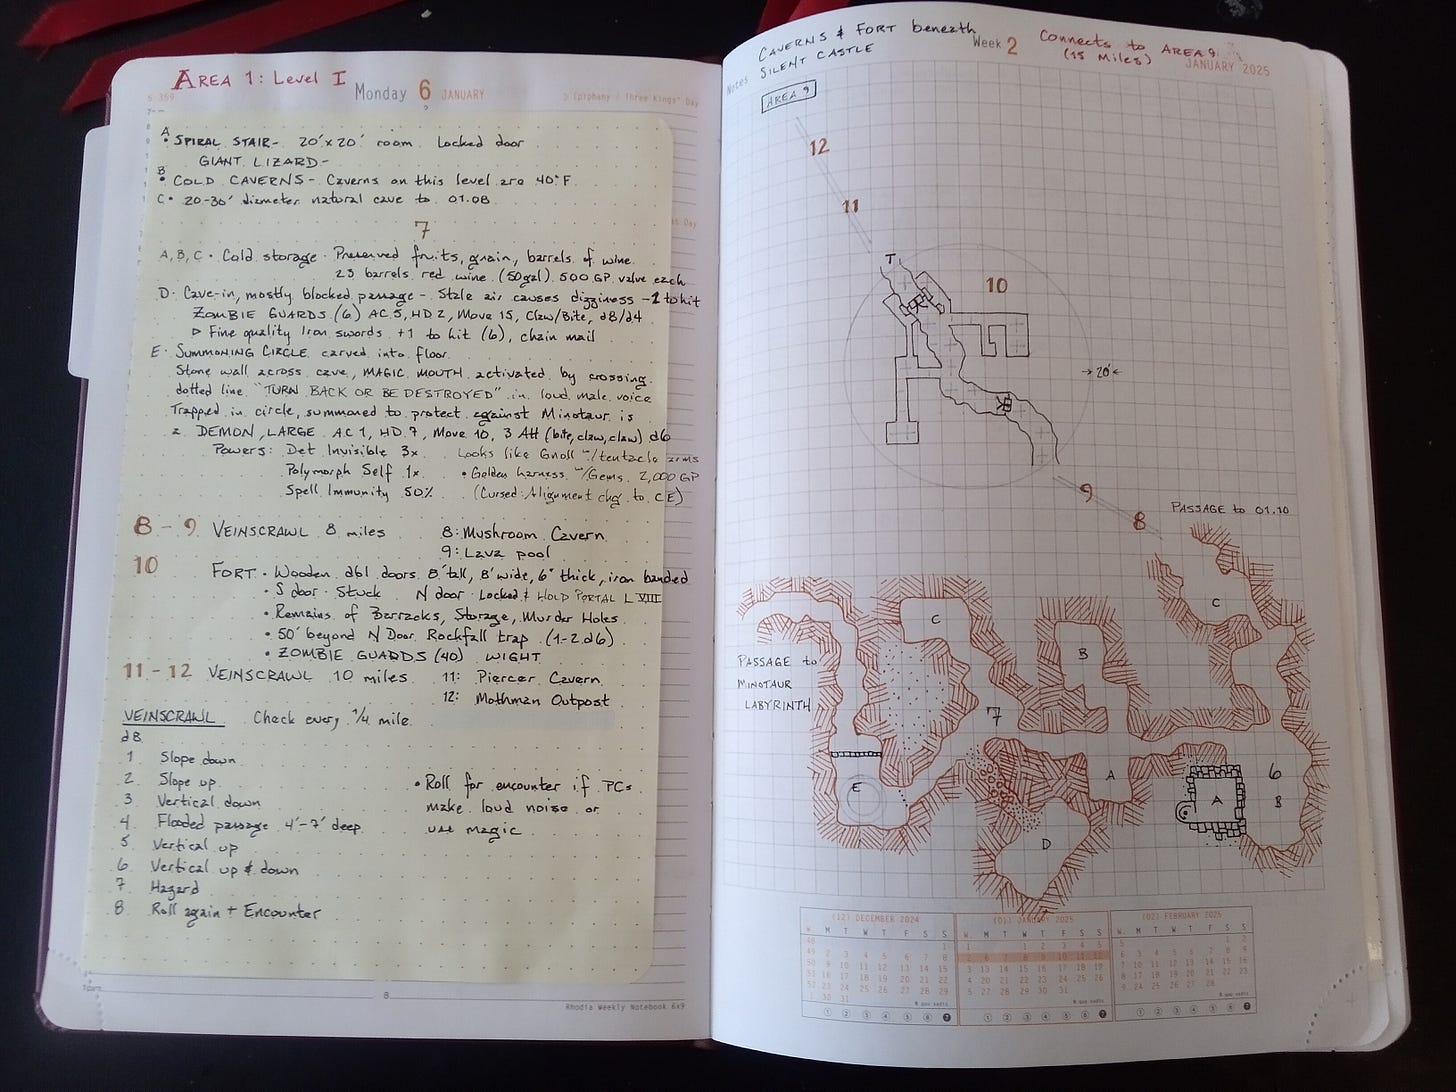 AREA 1: Level I
Monday 6 JANUARY
A
• SPIRAL STAIR- 20'x20' room. Locked door
GIANT LIZARD-
B
• COLD CAVERNS- Caverns on this level are 40°F
C• 20-30' diameter natural cave to 01.08
7
A, B, C • Cold storage • Preserved fruits, grain, barrels of wine.
23 barrels red wine (50gal) 500 GP value each
D• Cave-in, mostly blocked passage - Stale air causes dizziness -1 to hit
ZOMBIE GUARDS (6) AC 5, HD 2, Move 15, Claw/Bite, d8/d4
▷ Fine quality Iron swords +1 to hit (6), chain mail
E• SUMMONING CIRCLE carved into floor.
Stone wall across cave, MAGIC MOUTH activated by crossing
dotted line "TURN BACK OR BE DESTROYED" in loud male voice
Trapped in circle, summoned to protect against Minotaur is
a DEMON, LARGE AC 1, HD 7, Move 10, 3 Att (bite, claw, claw) d6
Powers: Det Invisible 3x Looks like Gnoll w/tentacle arms
Polymorph Self 1x • Golden harness w/Gems 2,000 GP
Spell Immunity 50% (Cursed: Alignment chg to CE)
8 - 9 VEINSCRAWL 8 miles 8: Mushroom Cavern
9: Lava pool
10 FORT • Wooden dbl doors 8' tall, 8' wide, 6" thick, iron banded
• S door • Stuck N door • Locked & HOLD PORTAL L VIII
• Remains of Barracks, Storage, Murder Holes
• 50' beyond N Door Rockfall trap (1-2 d6)
• ZOMBIE GUARDS (40) WIGHT
11 - 12 VEINSCRAWL 10 miles 11: Piercer Cavern
12: Mothman Outpost
VEINSCRAWL Check every 1/4 mile
d8
1 Slope down
2 Slope up
3 Vertical down
4 Flooded passage 4'-7' deep
5 Vertical up
6 Vertical up & down
7 Hazard
8 Roll again + Encounter
• Roll for encounter if PCs
make loud noise or
use magic
8
Rhodia Weekly Notebook 6x9
Notes
CAVERNS & FORT beneath
SILENT CASTLE
Week 2
Connects to AREA 9
(15 Miles)
JANUARY 2025
AREA 9
12
11
T
10
→20'←
9
8
PASSAGE to 01.10
C
C
B
PASSAGE to
MINOTAUR
LABYRINTH
7
E
A
A
6
B
D
(12) DECEMBER 2024
W. M T W T F S S
48 1
49 2 3 4 5 6 7 8
50 9 10 11 12 13 14 15
51 16 17 18 19 20 21 22
52 23 24 25 26 27 28 29
1 30 31
(01) JANUARY 2025
W. M T W T F S S
1 1 2 3 4 5
2 6 7 8 9 10 11 12
3 13 14 15 16 17 18 19
4 20 21 22 23 24 25 26
5 27 28 29 30 31
(02) FEBRUARY 2025
W. M T W T F S S
5 1 2
6 3 4 5 6 7 8 9
7 10 11 12 13 14 15 16
8 17 18 19 20 21 22 23
9 24 25 26 27 28